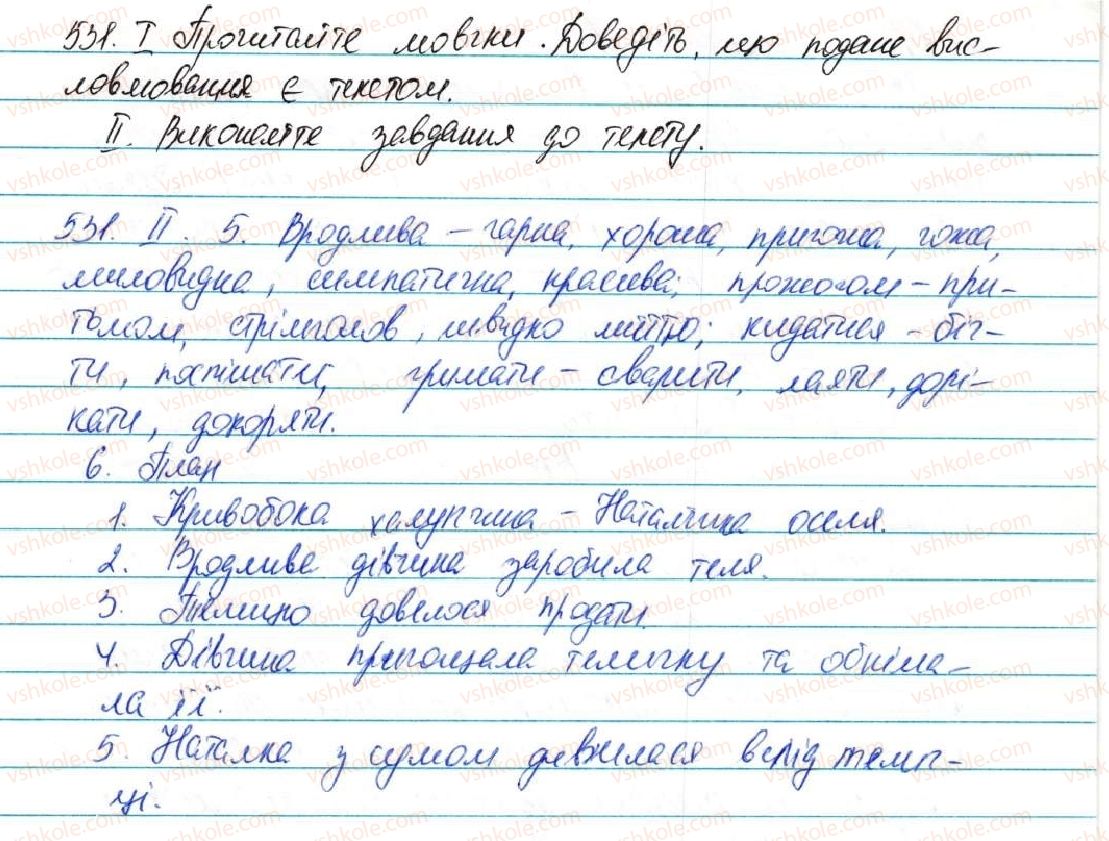 531. I Прочитайте мовчки. Доведіть, що подане вис-
ловлювання є текстом.
II. Виконайте завдання до тексту.
531. II. 5. Вродлива – гарна, хороша, пригожа, гожа,
миловидна, симпатична, красива; прожогом – при-
томом, стрімголов, швидко, митю; кидатися – біг-
ти, поспішати; гримати – сварити, лаяти, дорі-
кати, докоряти.
6. План
1. Кривобока халупчина – Наталчина оселя.
2. Вродлива дівчина заробила теля.
3. Телицю довелося продати.
4. Дівчина пригощала теличку та обніма-
ла її.
5. Наталка з сумом дивилася вслід тели-
ці.